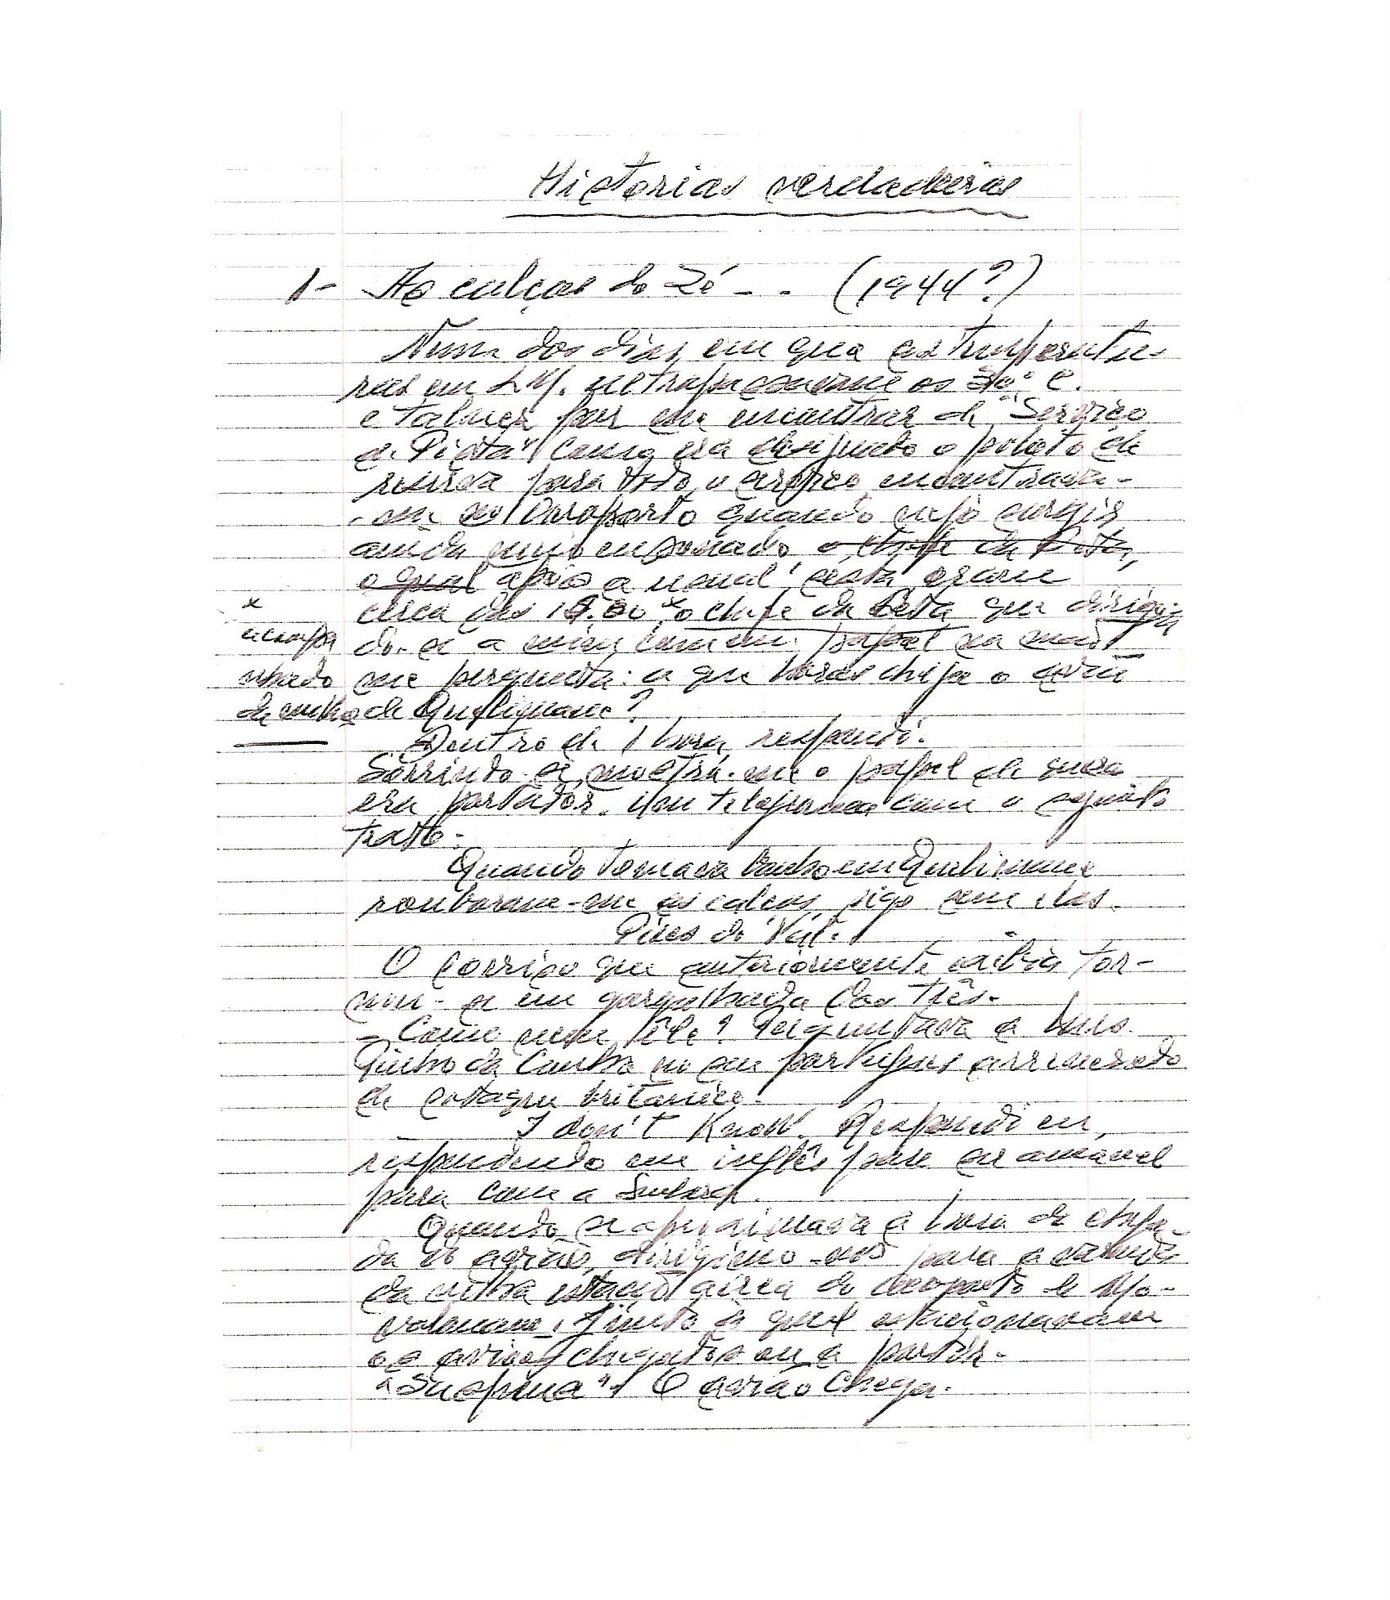 Historias verdadeiras
1- As calças do Zé - - (1944?)
Num dos dias em que as temperatu-
ras em L.M. ultrapassavam os 30° C.
e talvez por me encontrar de "Serviço
de Pista" como era designado o piloto de
reserva para todo o serviço encontrava-
-me no Aeroporto quando vejo surgir
ainda meio ensonado o chefe da Pista,
o qual após a usual sesta, eram
cerca das 15.00 * o chefe da Pista que dirigin-
do-se a mim com um papel na mão
me pergunta: a que horas chega o avião
de Quelimane?
* acompa
nhado
da
Dentro de 1 hora, respondi.
Sorrindo-se, mostra-me o papel de que
era portador, um telegrama com o seguinte
texto:
Quando tomava banho em Quelimane
roubaram-me as calças, sigo sem elas.
Pires do Val.
O sorriso que anteriormente exibia tor-
nou-se em gargalhada dos três.
- Como vem êle? Perguntava a
da Cunha no seu português arrevesado
de sotaque britanico.
- I don't Know. Respondi eu,
respondendo em inglês para ser amavel
para com a
Quando se aproximava a hora de chega-
da do avião, dirigimo-nos para a varanda
da velha estação aérea do aeroporto de Ma-
valane, junto à qual estacionavam
os aviões chegados ou a partir.
"Suspense"! O avião chega.